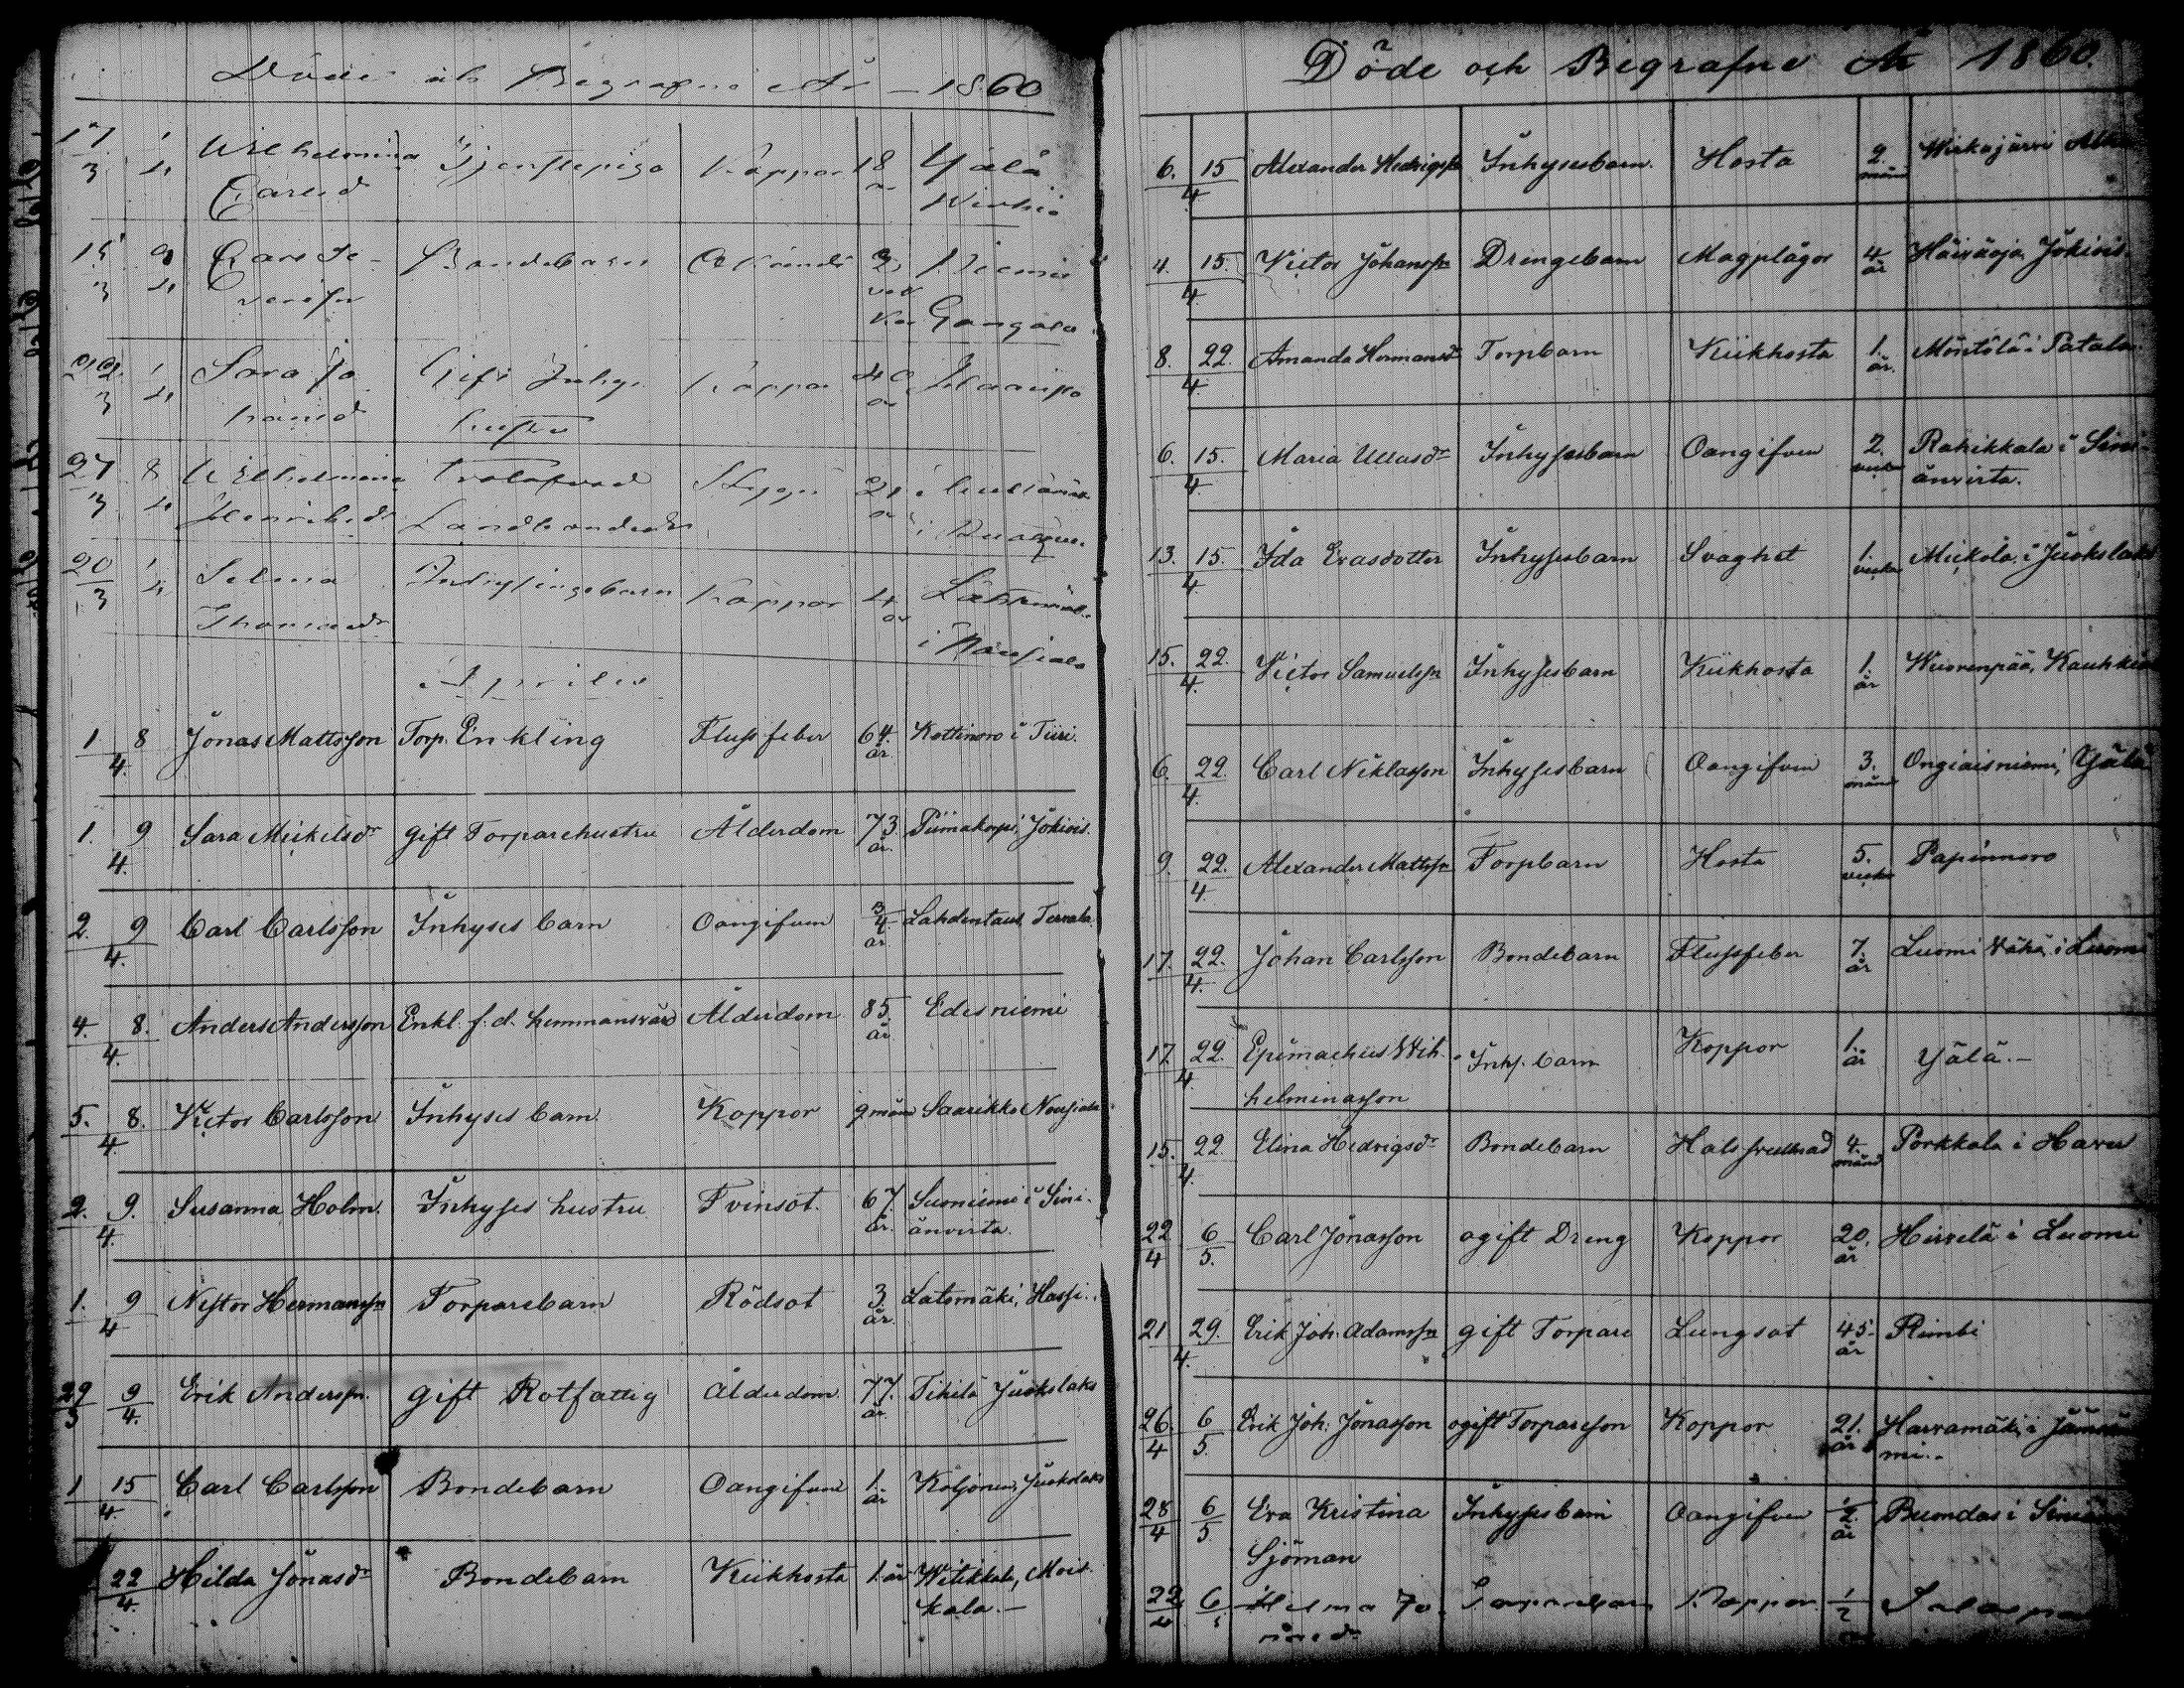 Döde och Begrafne År 1860
17/3 1/4 Wilhelmina Tjenstepiga Koppor 18 Yälä
Carlsd år
15/3 9/4 Carl Bondebarn Okänd 2 Niemi
Gangala
22/3 1/4 Sara Jo- Gift Inhys Koppor 40
hansd hustru år
27/3 8/4 Wilhelmina Trolofvad 21
Henriksd år i
20/3 1/4 Selma Inhysingebarn Koppor 4
Thomasdr år i Nousiala
Aprilis
1 8/4. Jonas Mattsson Torp. Enkling Flussfeber 64. år Kottinoro i Tiiri.
1. 9/4. Sara Mickelsdr gift Torparehustru Ålderdom 73 år. Piimakorpi, Jokiois.
2. 9/4. Carl Carlsson Inhyses barn Oangifven 3/4 år Lahdentaus Tervala
4. 8./4. Anders Andersson Enkl. f. d. hemmansvärd Ålderdom 85. år Edesniemi
5. 8./4. Victor Carlsson Inhyses barn Koppor 9 mån Saarikko Nousiala
2. 9./4. Susanna Holm. Inhyses hustru Tvinsot. 67. år. Suoniemi i Sini-
änvirta.
1. 9/4 Nestor Hermanssn Torparebarn Rödsot 3 år. Latomäki, Hassi.
29/3 9/4. Erik Anderssn. gift Rotfattig Ålderdom 77. år Tihilä Juokslaks
1 15/4. Carl Carlsson Bondebarn Oangifven 1. år Koljonen, Juokslaks
22/4. Hilda Jonasdr Bondebarn Kikhosta 1 år Witikkala, Mois-
kala.—
Döde och Begrafne År 1860.
6. 15/4 Alexander Hedrigssn Inhysesbarn. Hosta 2. månd Wirkajärvi
4. 15./4. Victor Johanssn Drengebarn Magplågor 4 år Häiväoja, Jokiois.
8. 22./4. Amanda Hermansdr Torpbarn Kikhosta 1. år. Möntölä i Patala.
6. 15./4. Maria Ullasdr Inhysesbarn Oangifven 2. veckor Rahikkala i Sini-
änvirta.
13. 15./4. Ida Evasdotter Inhysesbarn Svaghet 1. vecka Mickola i Juokslaks
15. 22./4. Victor Samuelssn Inhysesbarn Kikhosta 1. år Wuorenpää, Kauhkia
6. 22./4. Carl Niklasson Inhysesbarn Oangifven 3. månd Ongiaisniemi, Yälä
9. 22./4. Alexander Mattssn Torpbarn Hosta 5. veckor Papinnoro
17. 22./4. Johan Carlsson Bondebarn Flussfeber 7. år Luomi Wähä i Luomi
17 22./4. Epimachus Wil- Inhs. barn Koppor 1. år Yälä.—
helminasson
15. 22/4. Elina Hedrigsdr Bondebarn Halssvullnad 4. månd Porkkala i Havu
22/4 6/5. Carl Jonasson ogift Dreng Koppor 20. år Hirvelä i Luomi
21 29./4. Erik Joh. Adamssn gift Torpare Lungsot 45. år Rimbi
26./4 6/5. Erik Joh. Jonasson ogift Torpareson Koppor 21. år Harramäki i Jämsä-
mi..
28/4 6/5 Eva Kristina Inhysesbarn Oangifven 1/2. år Buondas i
Sjöman
22/4 6/5 Helma Jo- Torparebarn Koppor 1/2